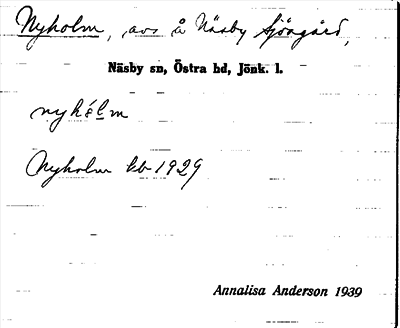 Nyholm, avs å Näsby Sjögård,
Näsby sn, Östra hd, Jönk. l.
nyhólm
Nyholm kb 1929
Annalisa Anderson 1939